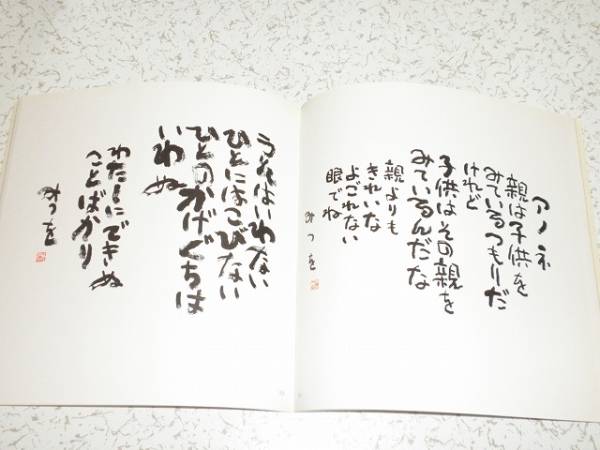 アノネ
親は子供を
みているつもりだ
けれど
子供はその親を
みているんだな
親よりも
きれいな
よごれない
眼でね
みつを
うそはいわない
ひとにはこびない
ひとのかげぐちは
いわぬ
わたしにできぬ
ことばかり
みつを